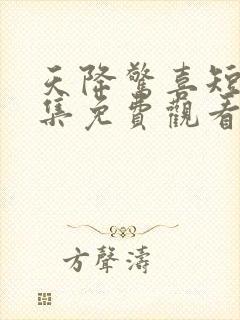 天降驚喜短
集免費觀看
方聲濤